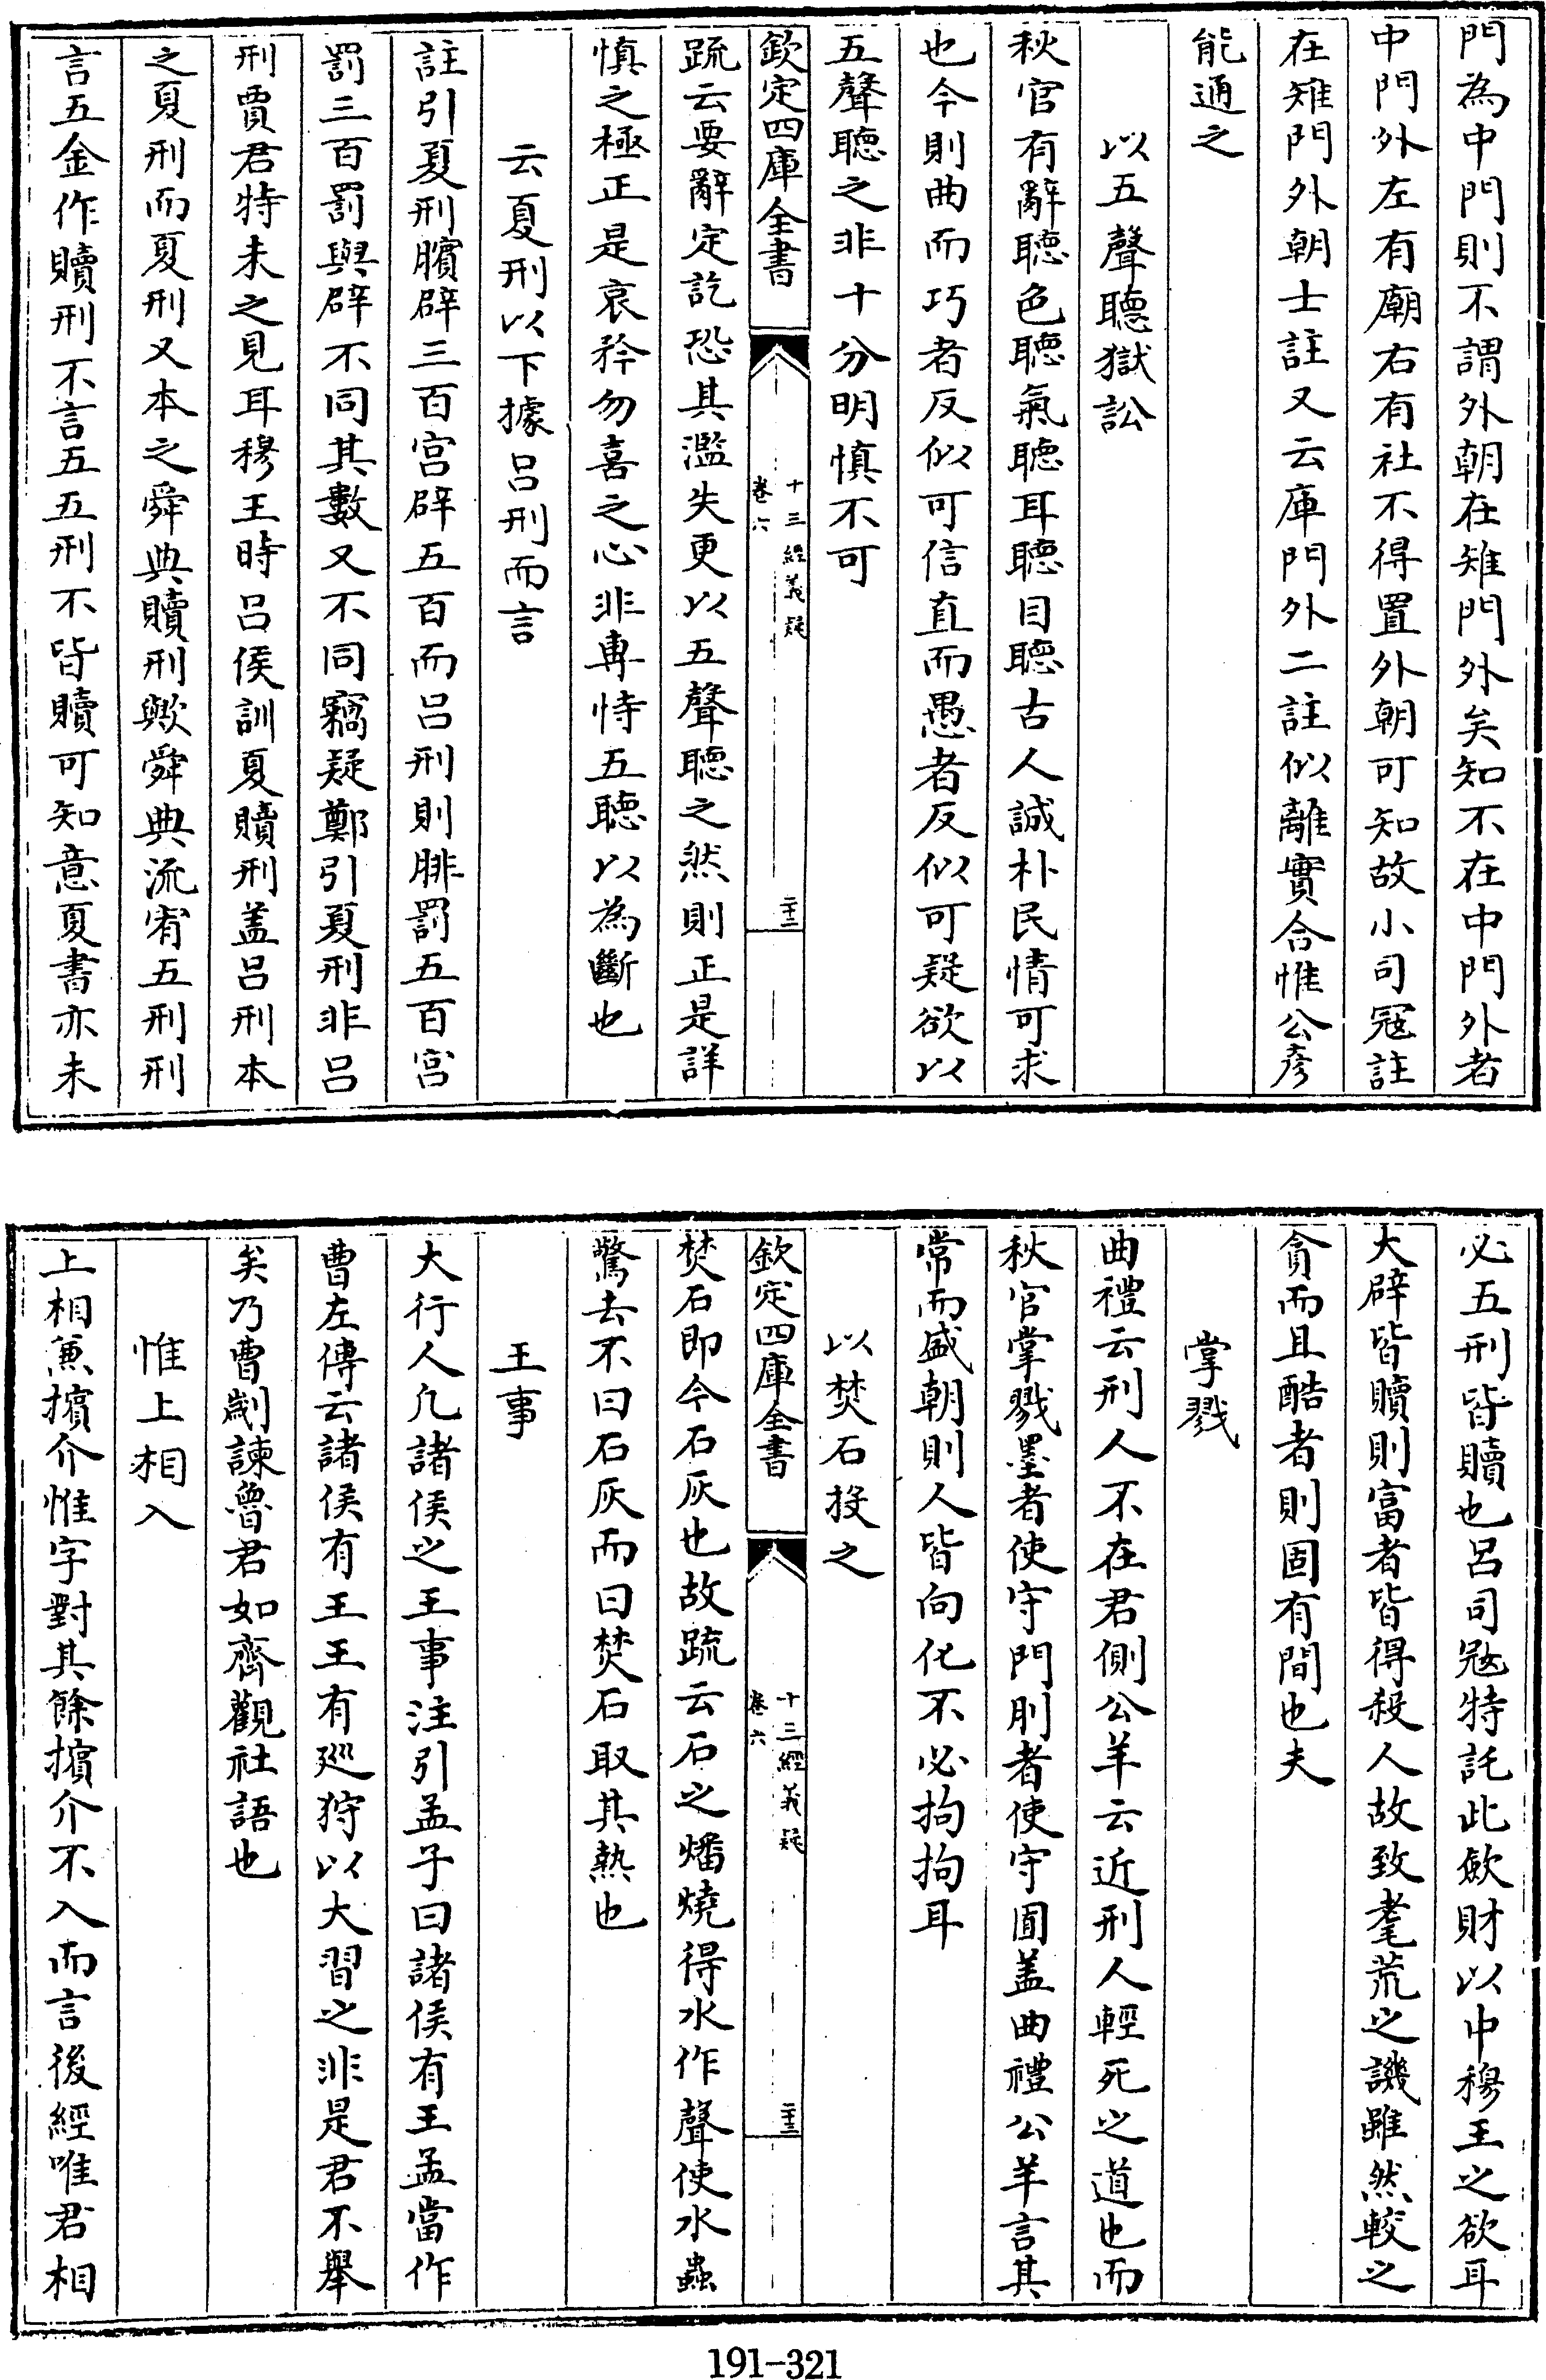 門為中門則不謂外朝在雉門外矣知不在中門外者
中門外左有廟右有社不得置外朝可知故小司冦註
在雉門外朝士註又云庫門外二註似離實合惟公彥
能通之
以五聲聽獄訟
秋官有辭聽色聽氣聽耳聽目聽古人誠朴民情可求
也今則曲而巧者反似可信直而愚者反似可疑欲以
五聲聽之非十分明慎不可
欽定四庫全書
十三經義疑
卷六
二十二
䟽云要辭定訖恐其濫失更以五聲聽之然則正是詳
慎之極正是哀矜勿喜之心非專恃五聽以為斷也
云夏刑以下據呂刑而言
註引夏刑臏辟三百宫辟五百而呂刑則腓罰五百宫
罰三百罰與辟不同其數又不同竊疑鄭引夏刑非呂
刑賈君特未之見耳穆王時呂侯訓夏贖刑盖呂刑本
之夏刑而夏刑又本之舜典贖刑歟舜典流宥五刑刑
言五金作贖刑不言五五刑不皆贖可知意夏書亦未
必五刑皆贖也呂司冦特託此斂財以中穆王之欲耳
大辟皆贖則富者皆得殺人故致耄荒之譏雖然較之
貪而且酷者則固有間也夫
掌戮
曲禮云刑人不在君側公羊云近刑人輕死之道也而
秋官掌戮墨者使守門刖者使守囿盖曲禮公羊言其
常而盛朝則人皆向化不必拘拘耳
以焚石投之
欽定四庫全書
十三經義疑
卷六
二十三
焚石即今石灰也故䟽云石之燔燒得水作聲使水蟲
驚去不曰石灰而曰焚石取其熱也
王事
大行人凡諸侯之王事注引孟子曰諸侯有王孟當作
曹左傳云諸侯有王王有廵狩以大習之非是君不舉
矣乃曹劌諫魯君如齊觀社語也
惟上相入
上相兼擯介惟字對其餘擯介不入而言後經唯君相
191-321